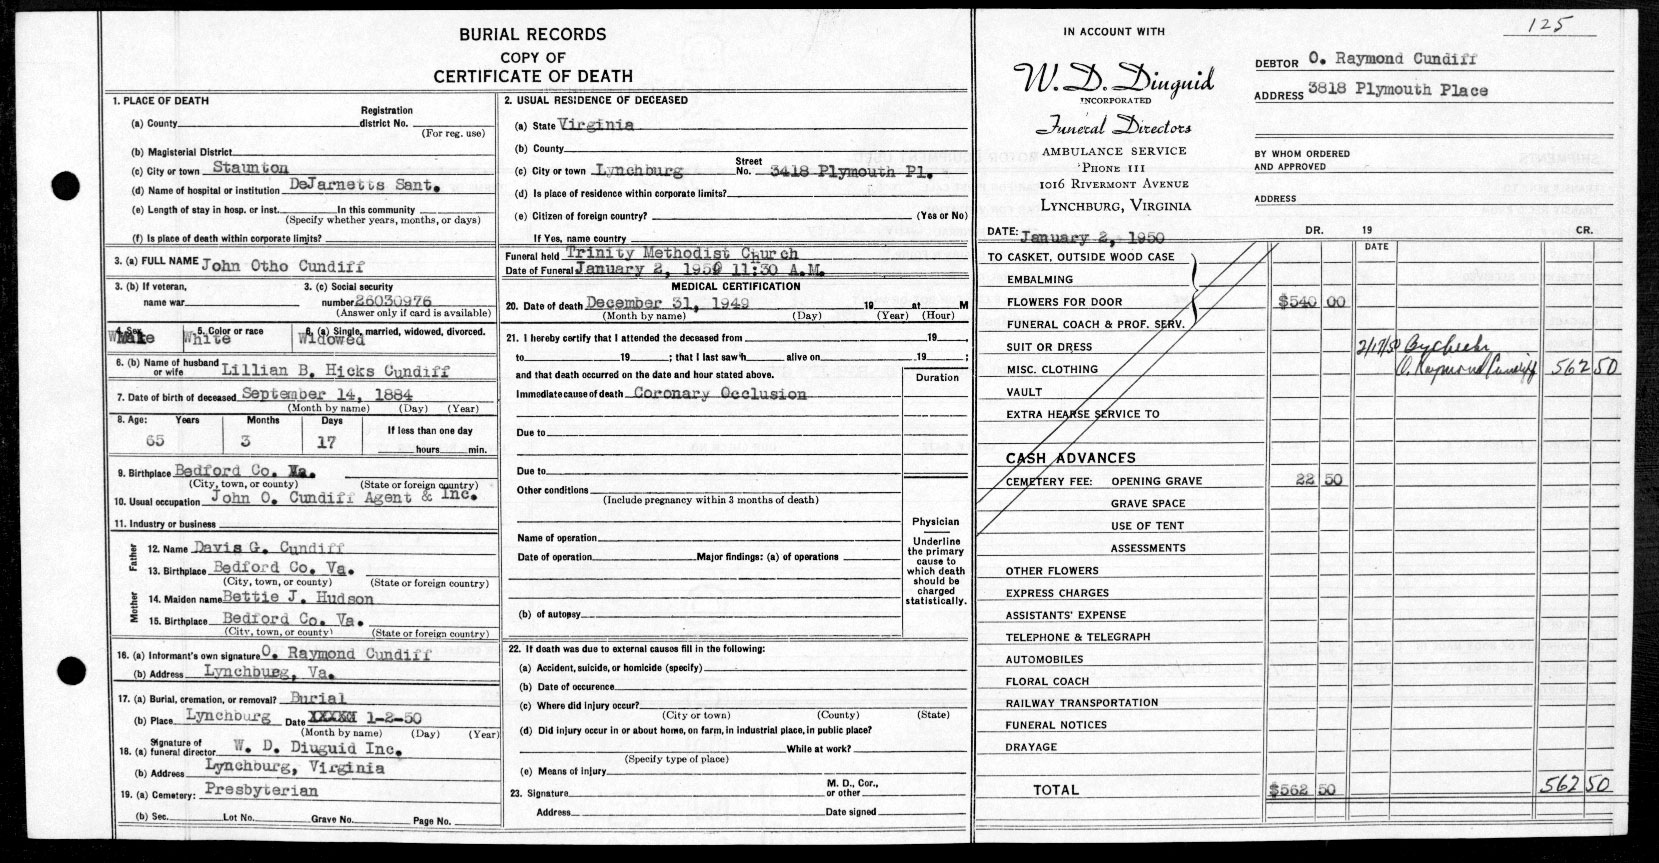 BURIAL RECORDS
COPY OF
CERTIFICATE OF DEATH
1. PLACE OF DEATH
(a) County
Registration district No.
(For reg. use)
(b) Magisterial District
(c) City or town Staunton
(d) Name of hospital or institution DeJarnetts Sant.
(e) Length of stay in hosp. or inst. In this community
(Specify whether years, months, or days)
(f) Is place of death within corporate limits?
3. (a) FULL NAME John Otho Cundiff
3. (b) If veteran, name war
3. (c) Social security number 26030976
(Answer only if card is available)
4. Sex Male
5. Color or race White
6. (a) Single, married, widowed, divorced. Widowed
6. (b) Name of husband or wife Lillian B. Hicks Cundiff
7. Date of birth of deceased September 14, 1884
(Month by name) (Day) (Year)
8. Age: Years Months Days If less than one day
65 3 17 hours min.
9. Birthplace Bedford Co. Va.
(City, town, or county) (State or foreign country)
10. Usual occupation John O. Cundiff Agent & Inc.
11. Industry or business
Father
12. Name Davis G. Cundiff
13. Birthplace Bedford Co. Va.
(City, town, or county) (State or foreign country)
Mother
14. Maiden name Bettie J. Hudson
15. Birthplace Bedford Co. Va.
(City, town, or county) (State or foreign country)
16. (a) Informant's own signature O. Raymond Cundiff
(b) Address Lynchburg, Va.
17. (a) Burial, cremation, or removal? Burial
(b) Place Lynchburg Date XXXXX 1-2-50
(Month by name) (Day) (Year)
18. (a) Signature of funeral director W. D. Diuguid Inc.
(b) Address Lynchburg, Virginia
19. (a) Cemetery: Presbyterian
(b) Sec. Lot No. Grave No. Page No.
2. USUAL RESIDENCE OF DECEASED
(a) State Virginia
(b) County
(c) City or town Lynchburg Street No. 3418 Plymouth Pl.
(d) Is place of residence within corporate limits?
(e) Citizen of foreign country? (Yes or No)
If Yes, name country
Funeral held Trinity Methodist Church
Date of Funeral January 2, 1950 11:30 A.M.
MEDICAL CERTIFICATION
20. Date of death December 31, 1949 19 at M
(Month by name) (Day) (Year) (Hour)
21. I hereby certify that I attended the deceased from 19
to 19 ; that I last saw h alive on 19 ;
and that death occurred on the date and hour stated above.
Duration
Immediate cause of death Coronary Occlusion
Due to
Due to
Other conditions
(Include pregnancy within 3 months of death)
Physician
Underline the primary cause to which death should be charged statistically.
Name of operation
Date of operation Major findings: (a) of operations
(b) of autopsy
22. If death was due to external causes fill in the following:
(a) Accident, suicide, or homicide (specify)
(b) Date of occurence
(c) Where did injury occur?
(City or town) (County) (State)
(d) Did injury occur in or about home, on farm, in industrial place, in public place?
While at work?
(Specify type of place)
(e) Means of injury
23. Signature M. D., Cor., or other
Address Date signed
125
IN ACCOUNT WITH
W. D. Diuguid
INCORPORATED
Funeral Directors
AMBULANCE SERVICE
'PHONE 111
1016 RIVERMONT AVENUE
LYNCHBURG, VIRGINIA
DEBTOR O. Raymond Cundiff
ADDRESS 3818 Plymouth Place
BY WHOM ORDERED AND APPROVED
ADDRESS
DATE: January 2, 1950 DR. 19 CR.
DATE
TO CASKET, OUTSIDE WOOD CASE
EMBALMING
FLOWERS FOR DOOR $540 00
FUNERAL COACH & PROF. SERV.
SUIT OR DRESS 2/17/50 By check
MISC. CLOTHING O. Raymond Cundiff 562 50
VAULT
EXTRA HEARSE SERVICE TO
CASH ADVANCES
CEMETERY FEE: OPENING GRAVE 22 50
GRAVE SPACE
USE OF TENT
ASSESSMENTS
OTHER FLOWERS
EXPRESS CHARGES
ASSISTANTS' EXPENSE
TELEPHONE & TELEGRAPH
AUTOMOBILES
FLORAL COACH
RAILWAY TRANSPORTATION
FUNERAL NOTICES
DRAYAGE
TOTAL $562 50 562 50